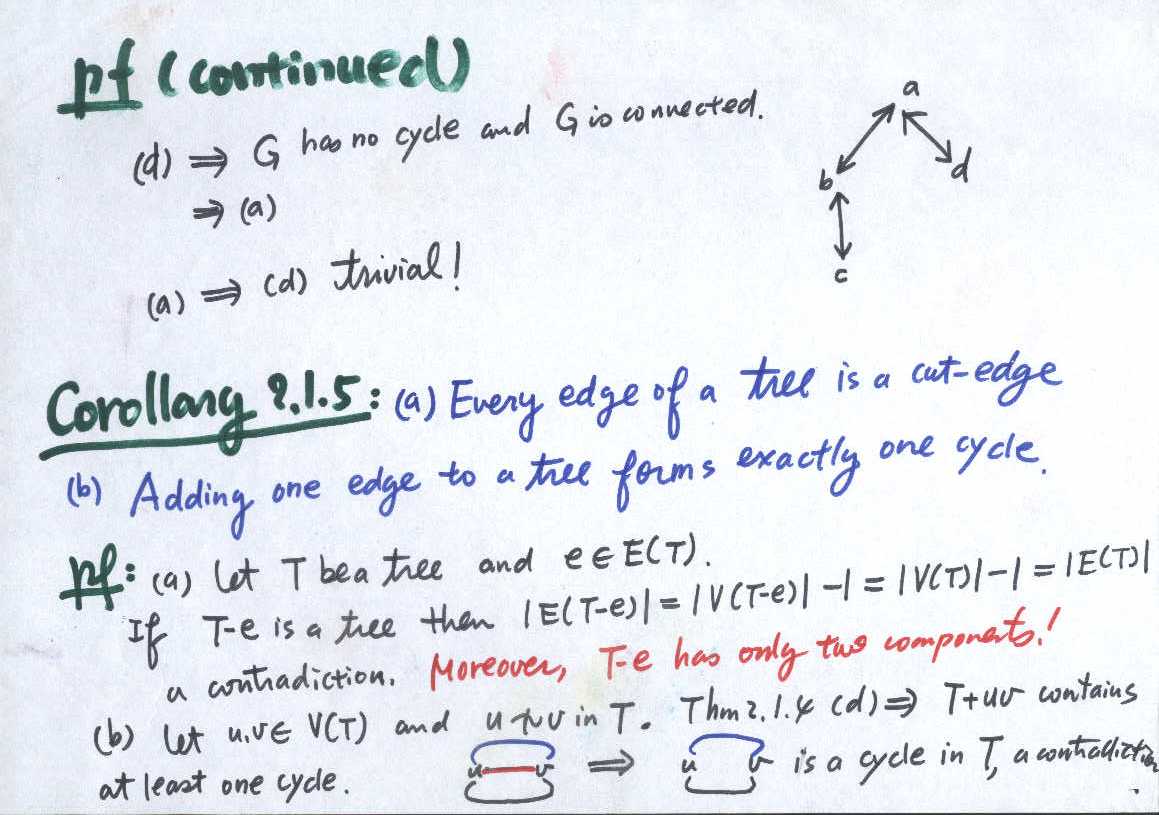 pf (continued)
(d) ⇒ G has no cycle and G is connected.
⇒ (a)
(a) ⇒ (d) trivial!
a
b
d
c
Corollary 2.1.5: (a) Every edge of a tree is a cut-edge
(b) Adding one edge to a tree forms exactly one cycle.
pf: (a) Let T be a tree and e ∈ E(T).
If T-e is a tree then |E(T-e)| = |V(T-e)| -1 = |V(T)| -1 = |E(T)|
a contradiction. Moreover, T-e has only two components!
(b) Let u,v ∈ V(T) and u≁v in T. Thm 2.1.4 (d) ⇒ T+uv contains
at least one cycle. u v ⇒ u v is a cycle in T, a contradiction